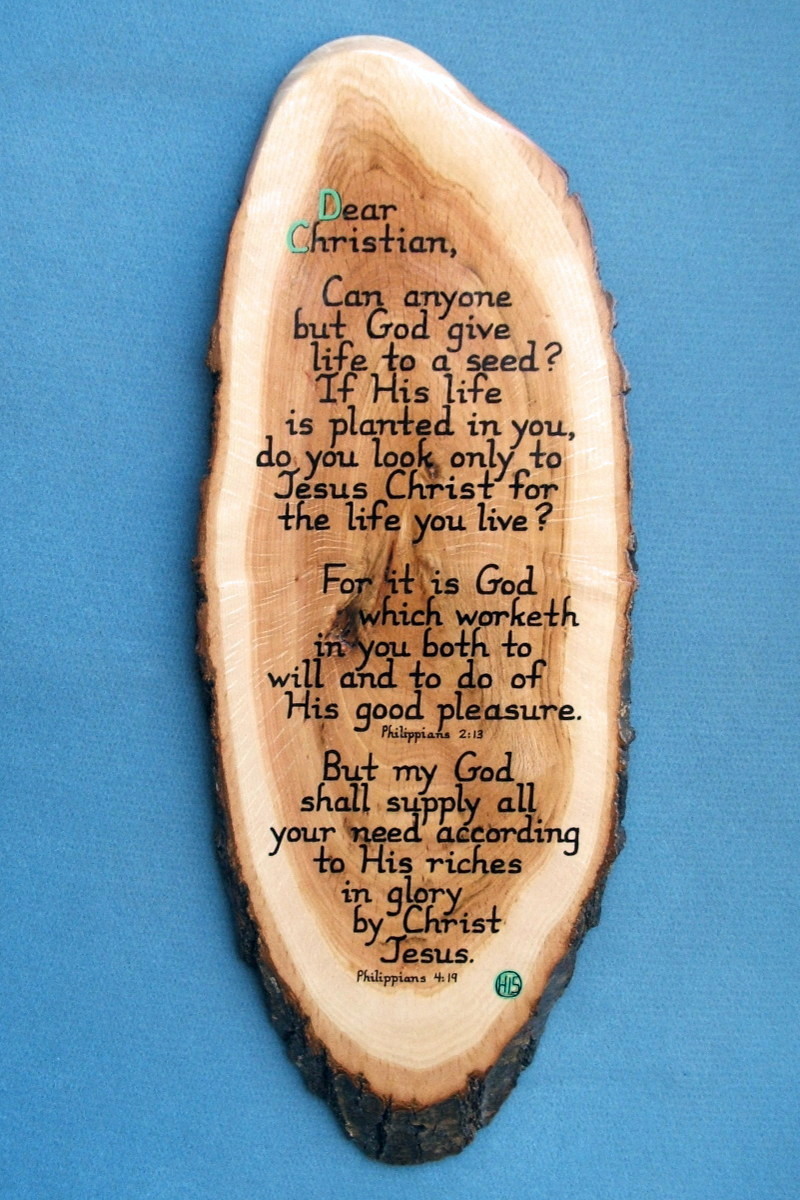 Dear
Christian,
Can anyone
but God give
life to a seed?
If His life
is planted in you,
do you look only to
Jesus Christ for
the life you live?
For it is God
which worketh
in you both to
will and to do of
His good pleasure.
Philippians 2:13
But my God
shall supply all
your need according
to His riches
in glory
by Christ
Jesus.
Philippians 4:19
HIS